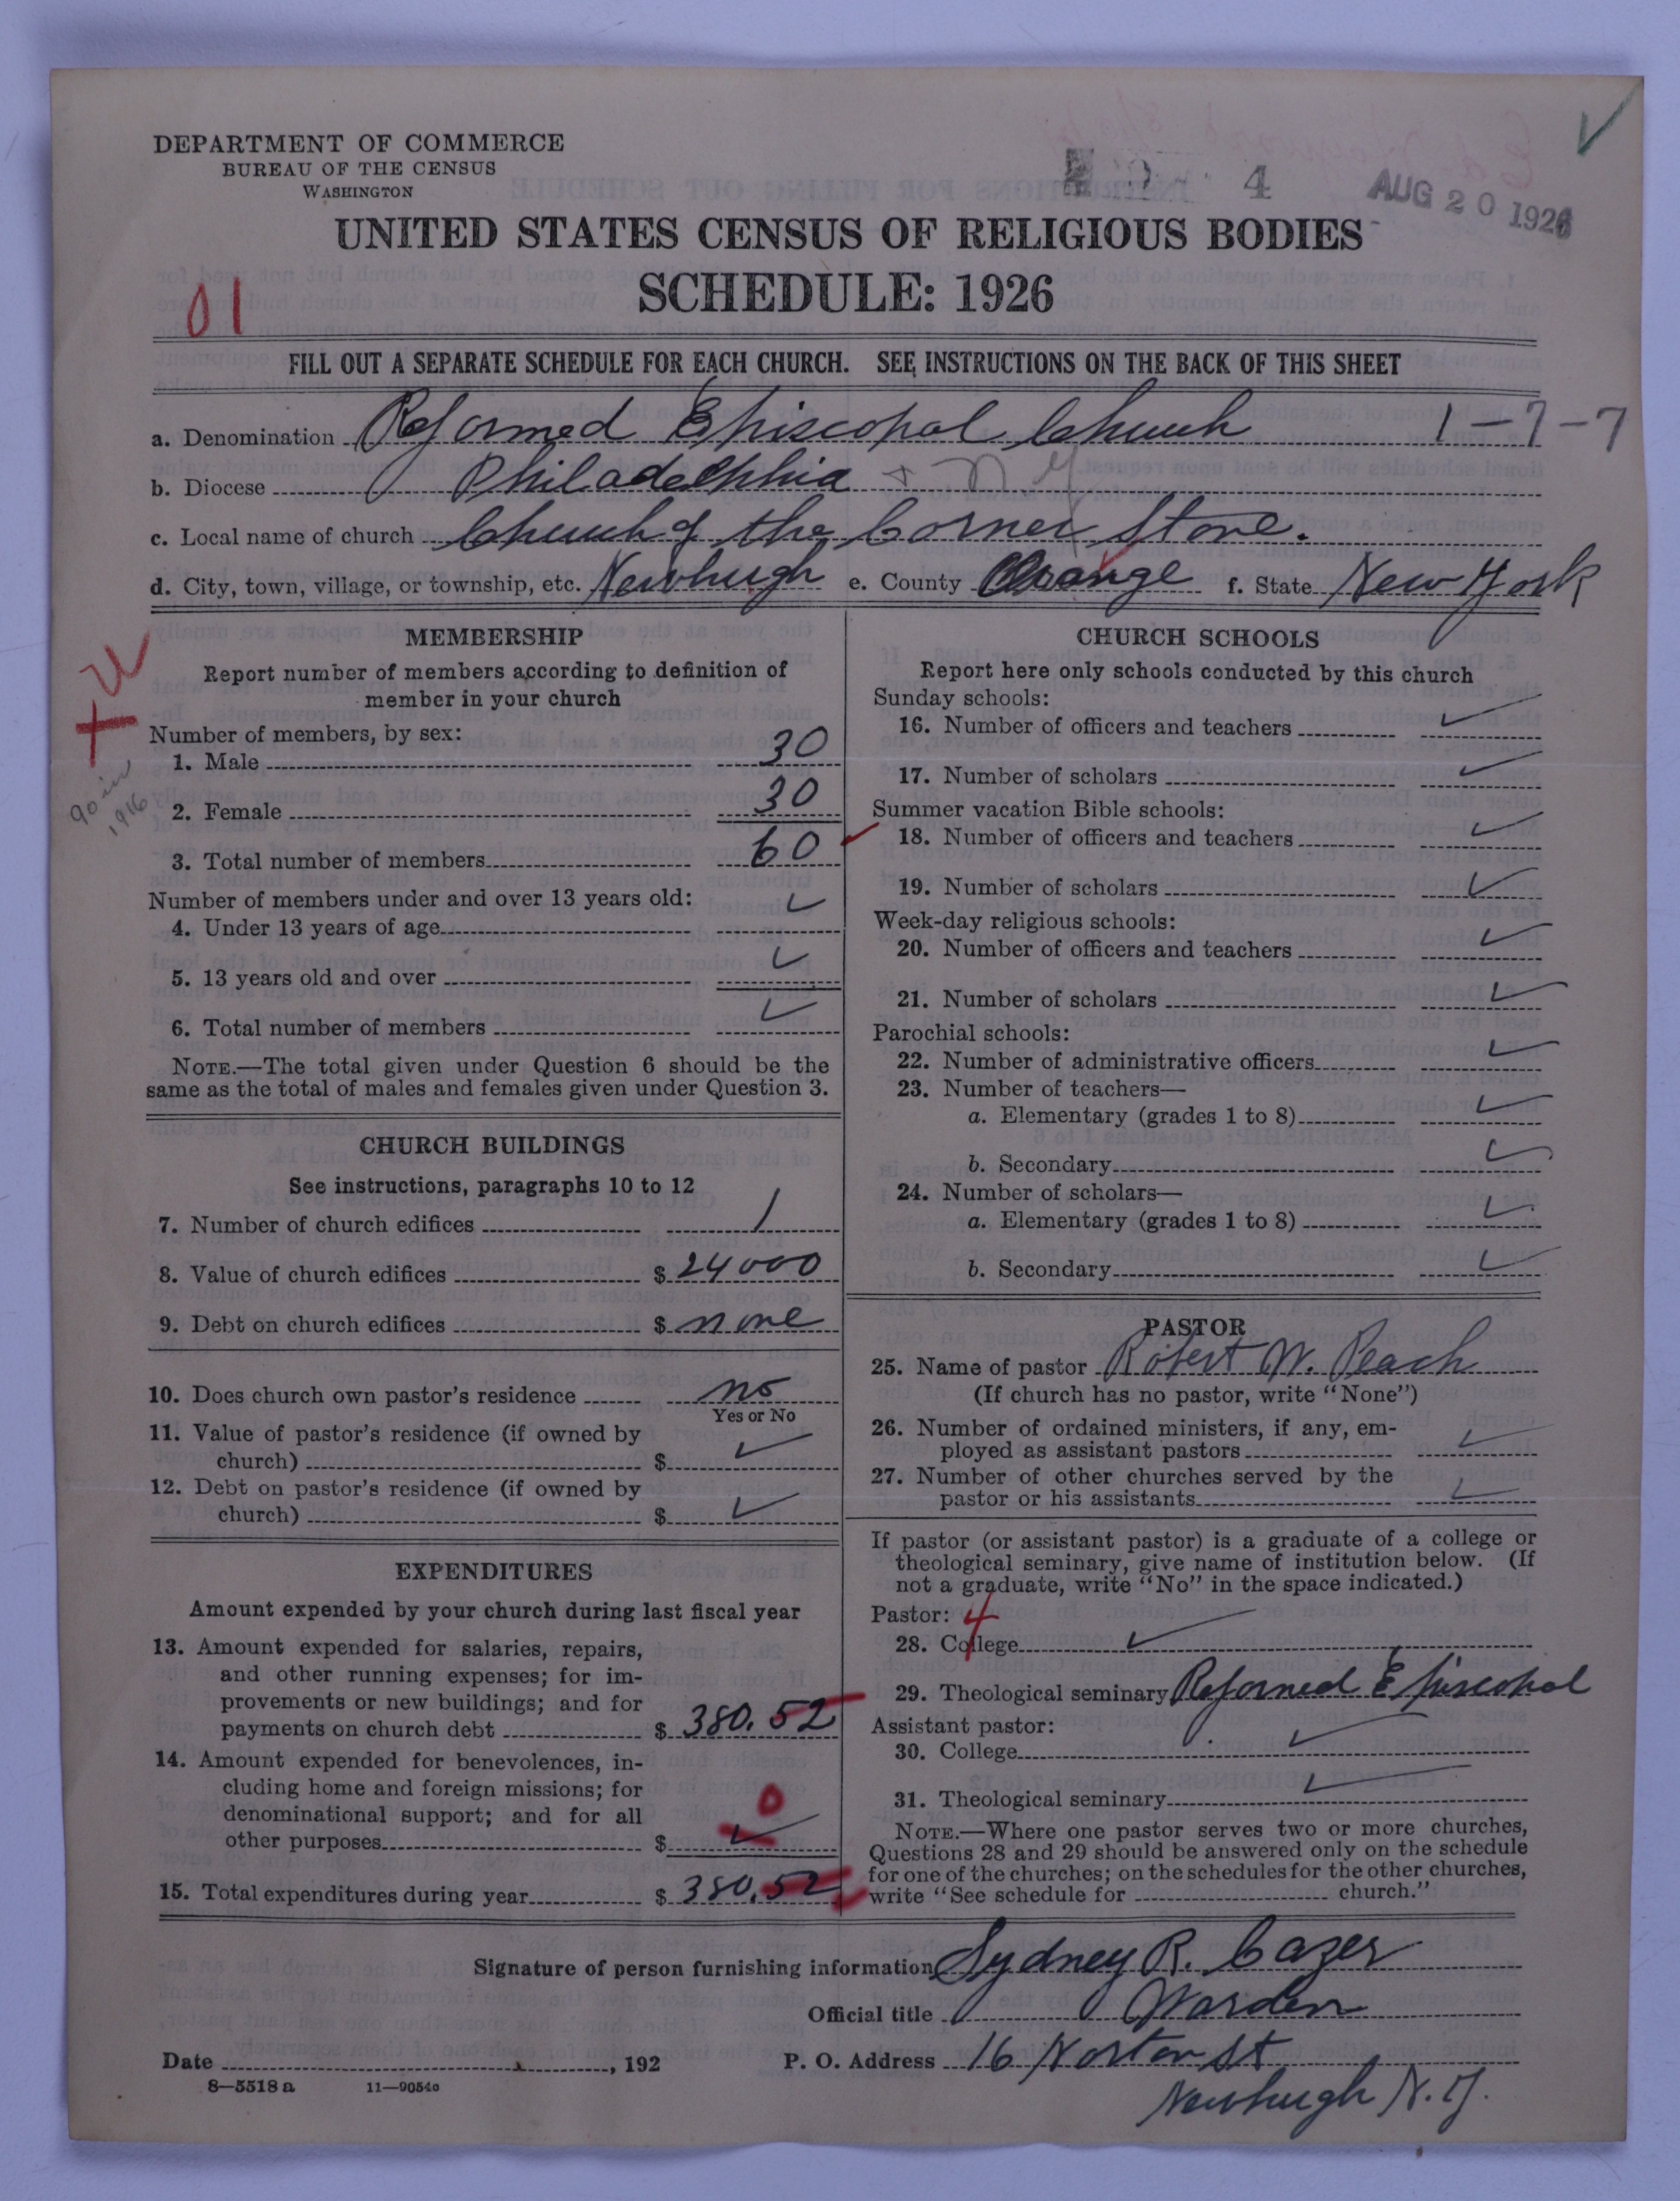 DEPARTMENT OF COMMERCE
BUREAU OF THE CENSUS
WASHINGTON
4
AUG 20 1926
UNITED STATES CENSUS OF RELIGIOUS BODIES
SCHEDULE: 1926
01
FILL OUT A SEPARATE SCHEDULE FOR EACH CHURCH. SEE INSTRUCTIONS ON THE BACK OF THIS SHEET
a. Denomination Reformed Episcopal Church 1-7-7
b. Diocese Philadelphia + N Y
c. Local name of church Church of the Corner Stone.
d. City, town, village, or township, etc. Newburgh e. County Orange f. State New York
MEMBERSHIP
Report number of members according to definition of
member in your church
Number of members, by sex:
1. Male 30
2. Female 30
90 in
1916
3. Total number of members 60
Number of members under and over 13 years old:
4. Under 13 years of age ✓
5. 13 years old and over ✓
6. Total number of members ✓
NOTE.—The total given under Question 6 should be the
same as the total of males and females given under Question 3.
CHURCH BUILDINGS
See instructions, paragraphs 10 to 12
7. Number of church edifices 1
8. Value of church edifices $ 24000
9. Debt on church edifices $ none
10. Does church own pastor's residence no
Yes or No
11. Value of pastor's residence (if owned by
church) $ ✓
12. Debt on pastor's residence (if owned by
church) $ ✓
EXPENDITURES
Amount expended by your church during last fiscal year
13. Amount expended for salaries, repairs,
and other running expenses; for im-
provements or new buildings; and for
payments on church debt $ 380.52
14. Amount expended for benevolences, in-
cluding home and foreign missions; for
denominational support; and for all
other purposes $ ✓ 0
15. Total expenditures during year $ 380.52
CHURCH SCHOOLS
Report here only schools conducted by this church
Sunday schools:
16. Number of officers and teachers ✓
17. Number of scholars ✓
Summer vacation Bible schools:
18. Number of officers and teachers ✓
19. Number of scholars ✓
Week-day religious schools:
20. Number of officers and teachers ✓
21. Number of scholars ✓
Parochial schools:
22. Number of administrative officers ✓
23. Number of teachers—
a. Elementary (grades 1 to 8) ✓
b. Secondary ✓
24. Number of scholars—
a. Elementary (grades 1 to 8) ✓
b. Secondary ✓
PASTOR
25. Name of pastor Robert W. Peach
(If church has no pastor, write "None")
26. Number of ordained ministers, if any, em-
ployed as assistant pastors ✓
27. Number of other churches served by the
pastor or his assistants ✓
If pastor (or assistant pastor) is a graduate of a college or
theological seminary, give name of institution below. (If
not a graduate, write "No" in the space indicated.)
Pastor: 4
28. College ✓
29. Theological seminary Reformed Episcopal
Assistant pastor:
30. College ✓
31. Theological seminary ✓
NOTE.—Where one pastor serves two or more churches,
Questions 28 and 29 should be answered only on the schedule
for one of the churches; on the schedules for the other churches,
write "See schedule for church."
Signature of person furnishing information Sydney R. Cazer
Official title Warden
Date , 192
P. O. Address 16 Norton St
Newburgh N.Y.
8—5518 a 11—9054c